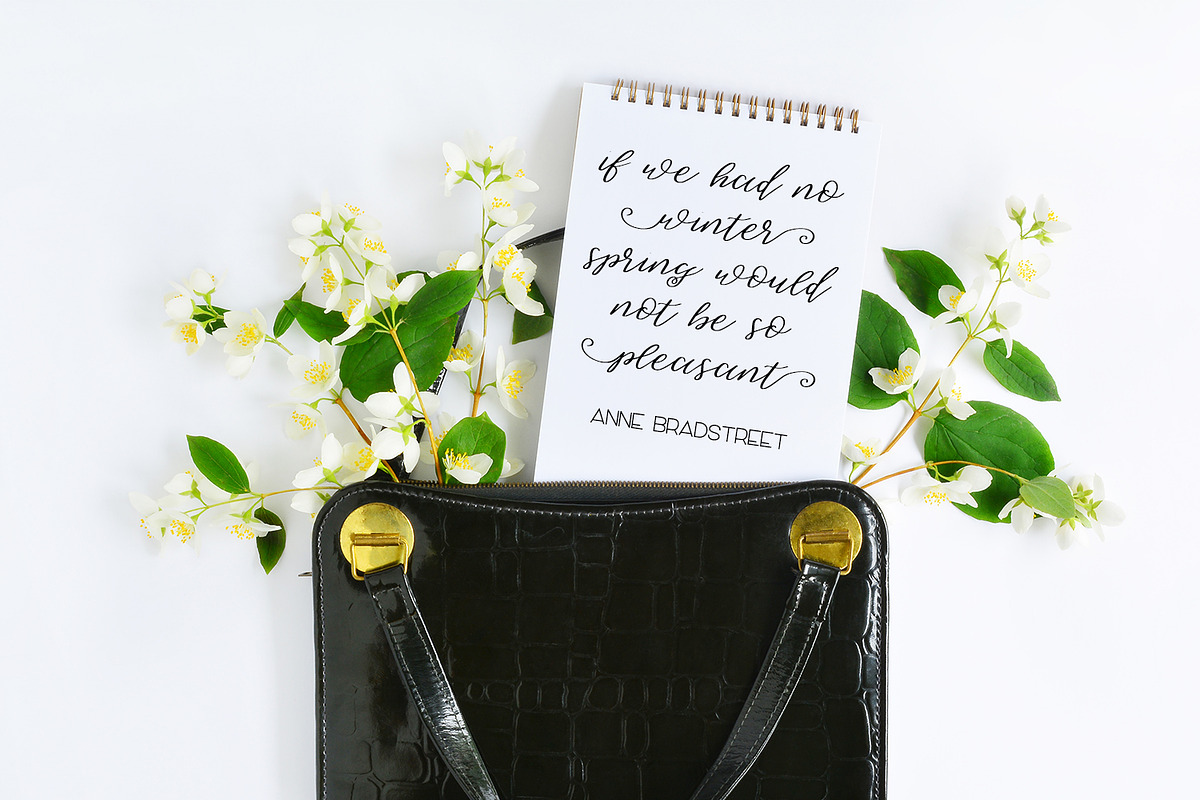 if we had no
winter
spring would
not be so
pleasant
ANNE BRADSTREET